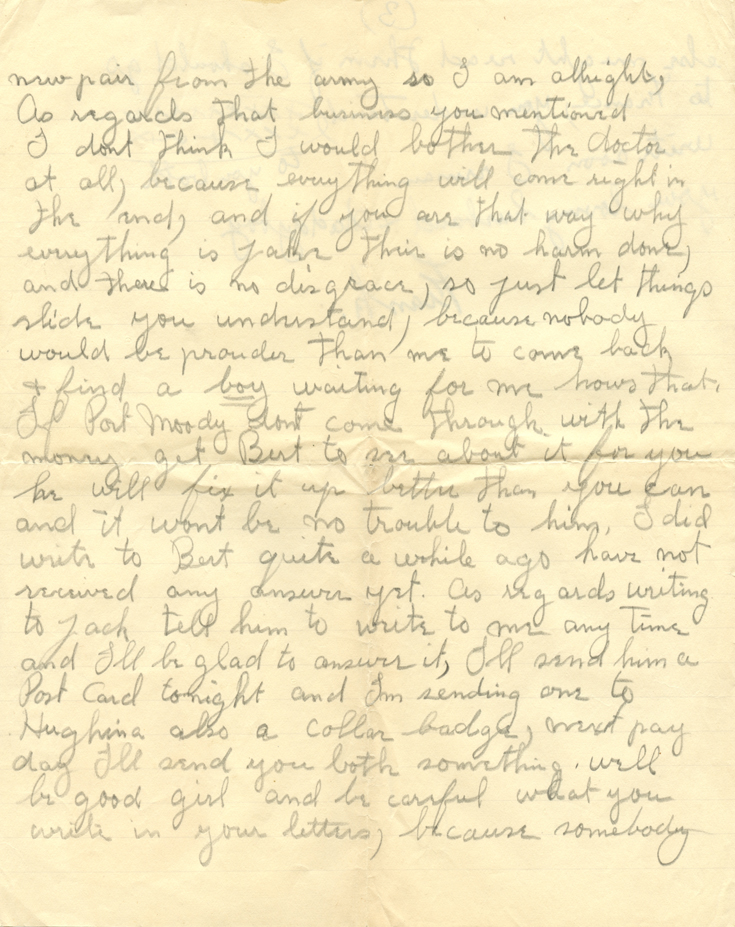 new pair from the army so I am allright,
As regards that business you mentioned
I dont think I would bother the doctor
at all, because everything will come right in
the end, and if you are that way why
everything is jake their is no harm done,
and there is no disgrace, so just let things
slide you understand, because nobody
would be prouder than me to come back
& find a boy waiting for me hows that.
If Port Moody dont come through with the
money get Bert to see about it for you
he will fix it up better than you can
and it wont be no trouble to him, I did
write to Bert quite a while ago have not
received any answer yet. As regards writing
to Jack tell him to write to me any time
and I'll be glad to answer it, I'll send him a
Post Card tonight and I'm sending one to
Hughina also a collar badge, next pay
day I'll send you both something. well
be good girl and be careful what you
write in your letters, because somebody